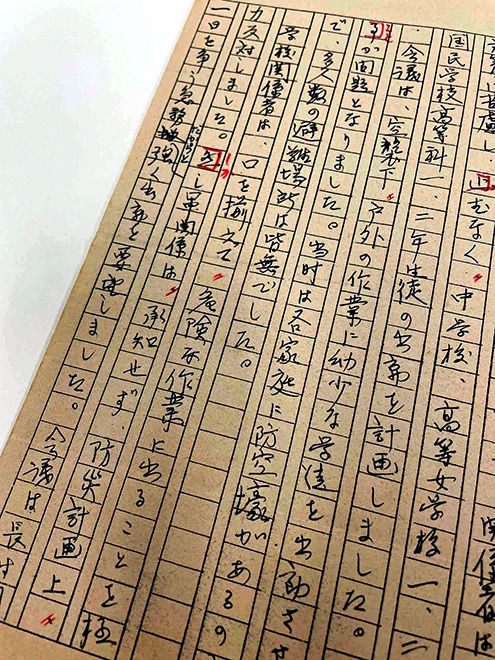 苦慮し　関係者は
止むなく、中学校、高等女学校一、二
国民学校高等科一、二年生徒の出動を計画しました。
会議は、空襲下、戸外の作業に幼少な学徒を出動させ
るが問題となりました。当時は各家庭に防空壕があるの
で、多人数の避難場所は皆無でした。
学校関係者は、口を揃えて、危険な作業に出ることを極
力反対しました。然し軍関係は、承知せず、防災計画上、
一日を争う急務だからと強く出動を要望しました。会議は長び